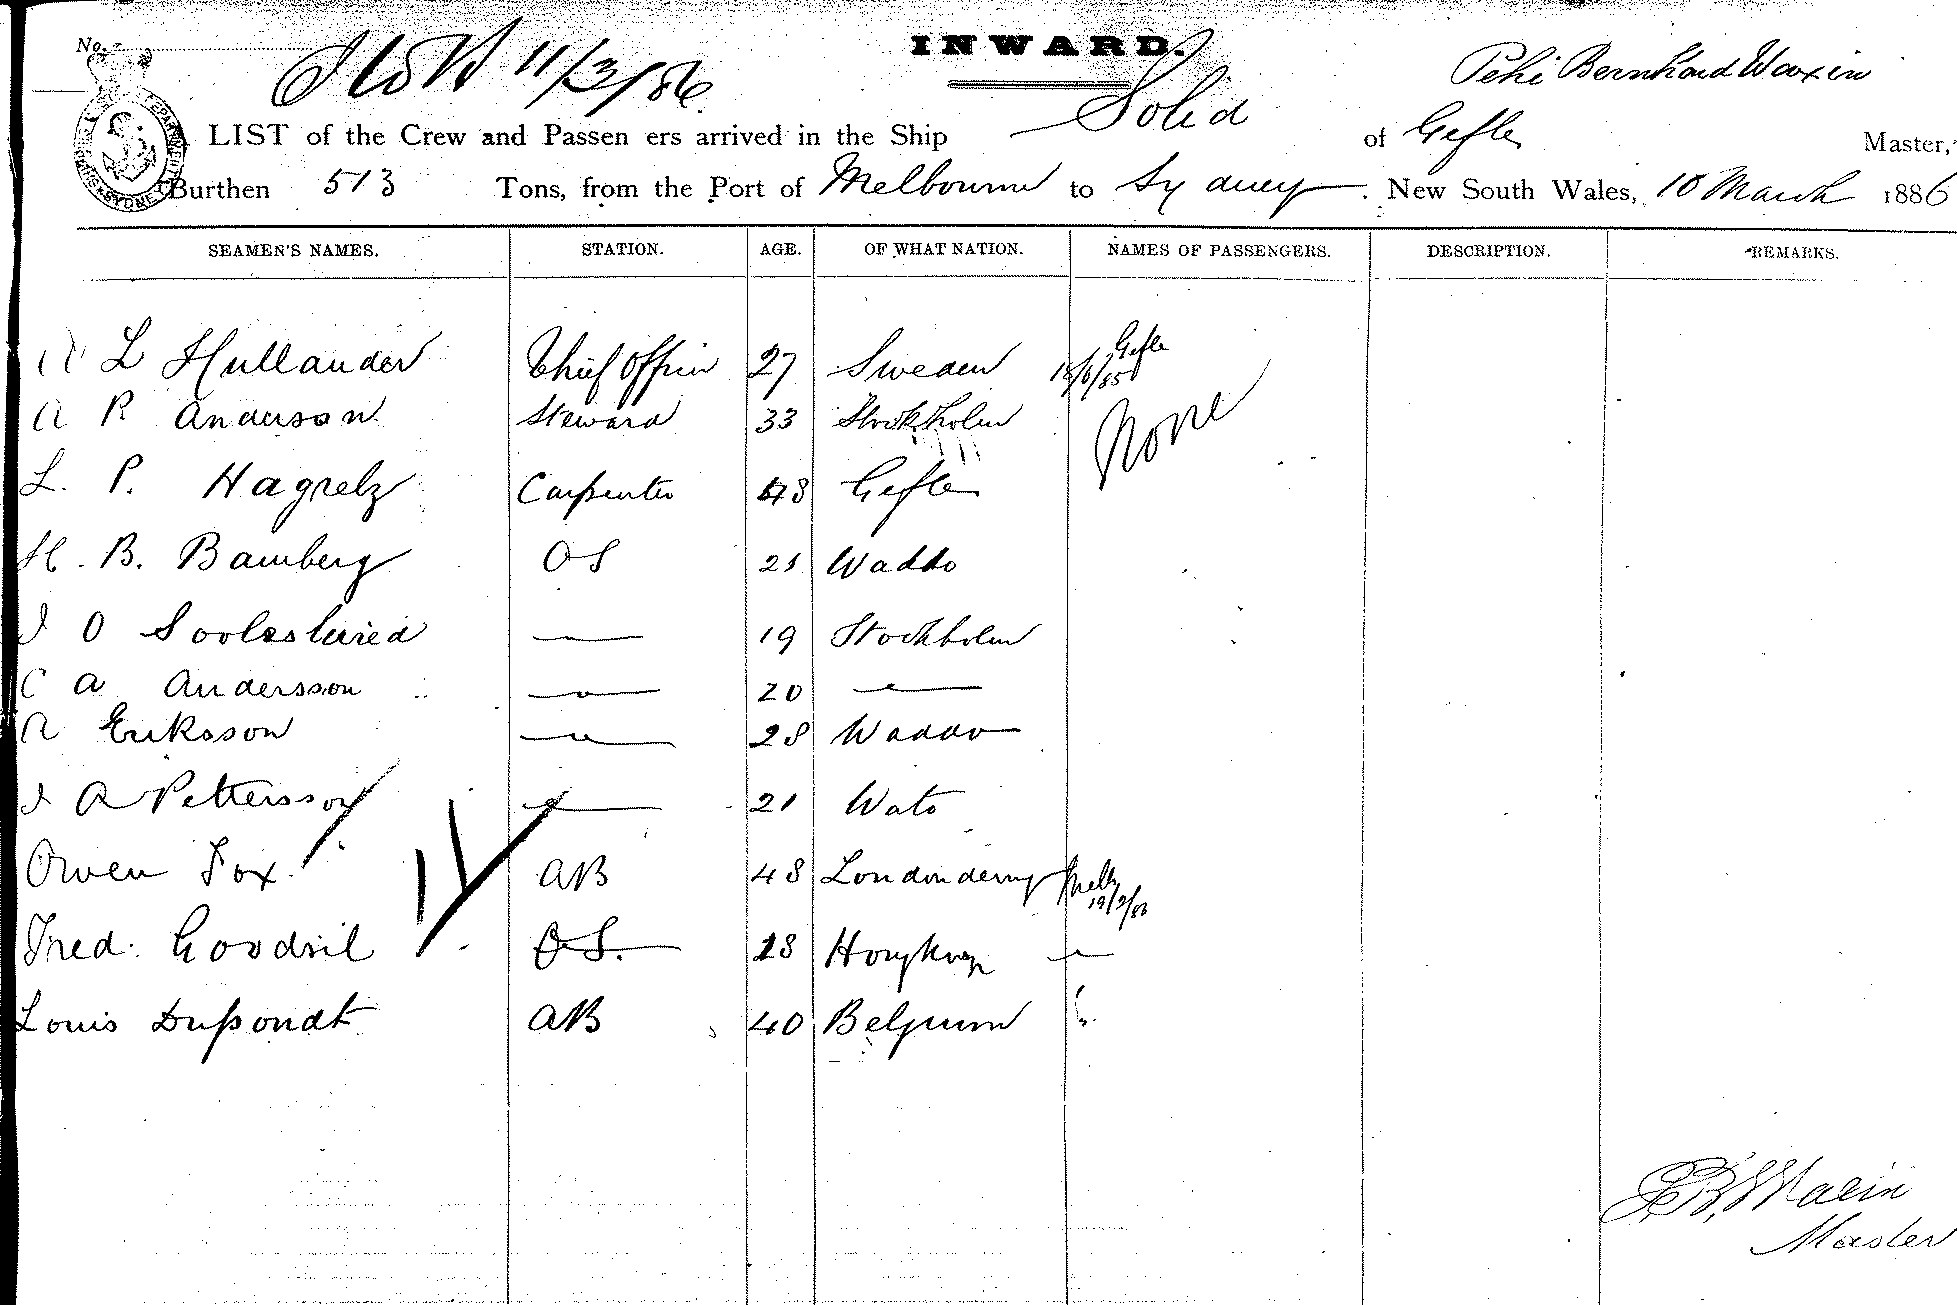 No.
11/3/86
INWARD.
Bernhard Waxin
LIST of the Crew and Passen ers arrived in the Ship Solid of Gefle Master,
Burthen 513 Tons, from the Port of Melbourne to Sydney. New South Wales, 10 March 1886
SEAMEN'S NAMES. STATION. AGE. OF WHAT NATION. NAMES OF PASSENGERS. DESCRIPTION. REMARKS.
L Hullander Chief Officer 27 Sweden Gefle 18/6/85
A R Anderson Steward 33 Stockholm None
L. P. Hagrelz Carpenter 48 Gefle
H. B. Bamberg OS 21 Waddo
J O 19 Stockholm
C A Andersson 20
A Eriksson 28 Waddo
J A Pettersson 21 Wato
Owen Fox AB 48 Londonderry Melb 19/2/86
Fred. Goodsil OS. 18 Hongkong
Louis Dupondt AB 40 Belgium
11
Master